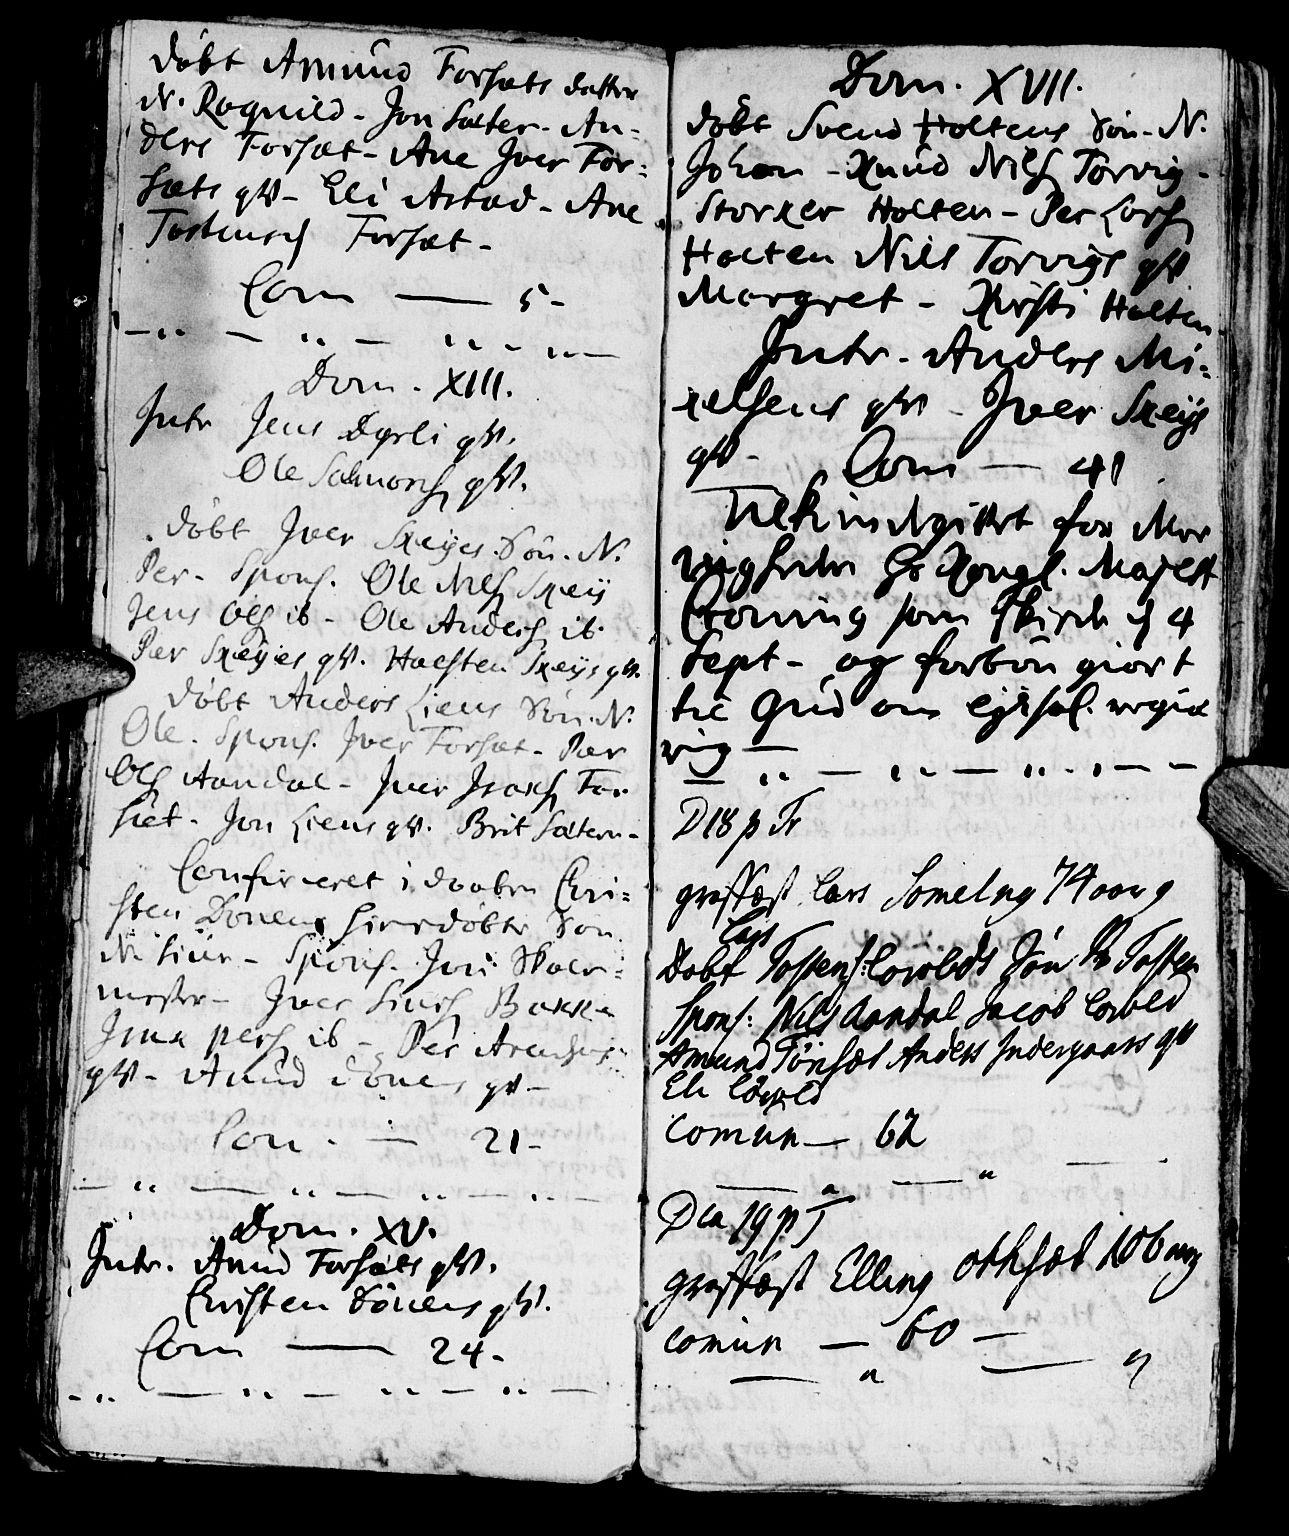 døbt Amund Forsæts datter
N. Ragnild - Jon Sæter - An-
ders Forsæt - Ane Iver For-
sæts qv - Eli Astad - Ane
Tostensd Forsæt -
Com — 5 -
Dom. XIII.
Intr Jens Dyrli qv.
Ole Salmons qv.
døbt Iver Skeyes Søn. N.
Per - Spons. Ole Nils Skey
Jens Ols ib - Ole Anders ib.
Per Skeyes qv. Halsten Skeys qv.
døbt Anders Liens Søn. N.
Ole. Spons. Iver Forsæt - Per
Ols Aandal - Iver Isaks For
sæt - Jon Liens qv. Brit Sætern -
Confirmeret i daaben Chri-
sten Dønens hiemdøbte Søn
N. Siur - Spons. Jon Skole-
mester - Iver Siurs Bakke
pers ib - Per
qv - Amund Dønens qv -
Com. — 21 -
Dom. XV.
Intr. Amund Forsæts qv.
Christen Dønens qv.
Com — 24 -
Dom. XVII.
døbt Svend Holtens Søn - N.
Johan - Knud Nils Torvig -
Storker Holten - Per Lars
Holten Nils Torvigs qv
Margret - Kirsti Holten
Intr - Anders Mi-
kelsens qv - Iver Skeys
qv - Com — 41
for
Hs Kongl. Majestt
Croning som skede d 4
Sept - og forbøn giort
til Gud om lyksal. regie
ring —
D 18 p Tr
graffæst Lars 74 aar g
Lars
Døbt Tostens: Søn N Tosten
Spons: Nils Aandal Jacob
Amund Anders Indergaars qv
Eli
Comun — 62
Dca 19 p T
graffæst Elling 106 aar g
comun — 60 —